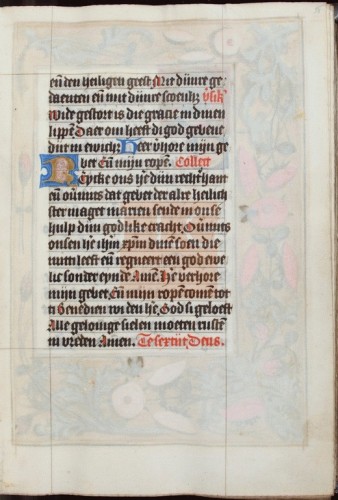 eñ den heiligen geest Mit dijnre ge
daenten eñ mit dijnre scoenh⁹ v̄sik
Wtde gestort is die gratie in dinen
lippē Daer om heeft di god gebene
dijt in ewich⁹ Heer v̄hore mijn ge
bet Eñ mijn ropē. Collect
ons he dijn recht hant
eñ dat gebet der alre heilich
ster maget marien sende in onse
hulp dijn godlike cracht
onsen he dinē soen die
mitti leeft eñ regneert een god ewe
lic sonder eynde Amē. He verhore
mijn gebet Eñ mijn ropen comē tot
ti Benedien wi den he. God si geloeft
Alle gelouige sielen moeten rusten
in vreden Amen. Te sextijt Deus.